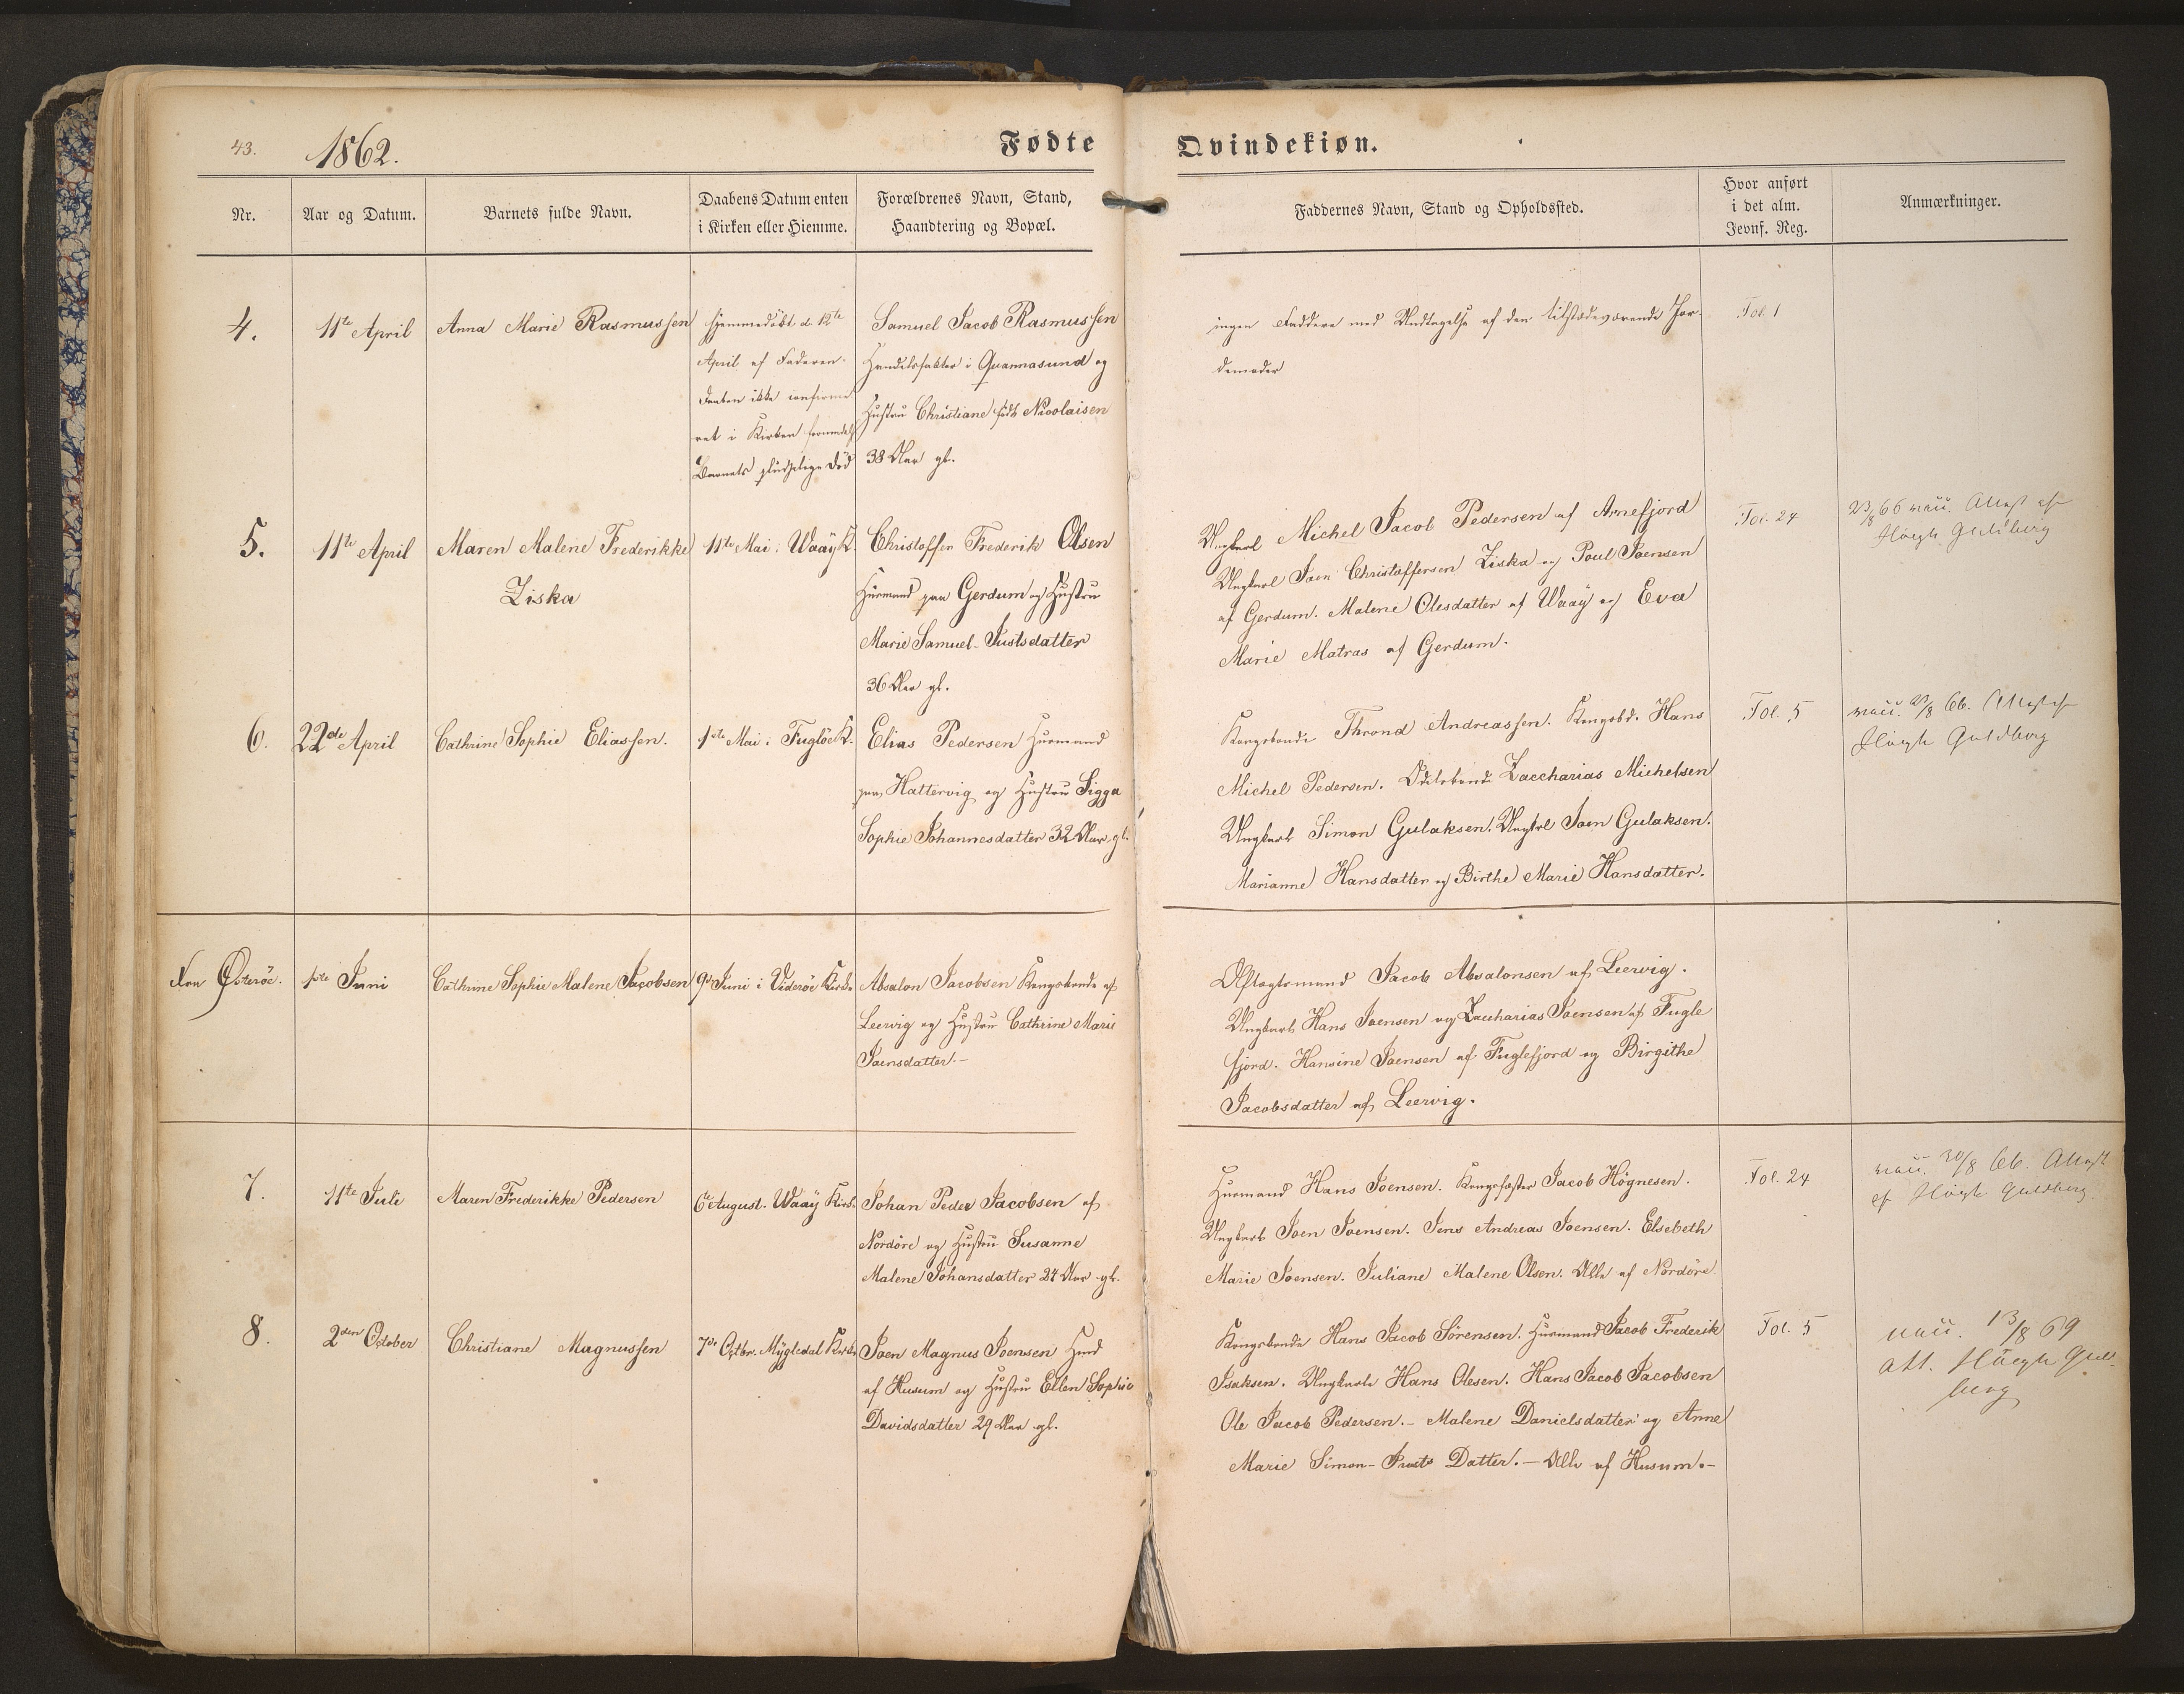 43.
1862.
Fødte
Qvindekiøn.
Nr.
Aar og Datum.
Barnets fulde Navn.
Daabens Datum enten
i Kirken eller Hiemme.
Forældrenes Navn, Stand,
Haandtering og Bopæl.
Faddernes Navn, Stand og Opholdssted.
Hvor anført
i det alm.
Jevnf. Reg.
Anmærkninger.
4.
11te April
Anna Marie Rasmussen
hjemmedøbt d. 12te
April af Faderen.
Daaben ikke confirme
ret i Kirken formedelst
Barnets pludselige Død
Samuel Jacob Rasmussen
Handelsfaktor i Quannasund og
Hustru Christiane født Nicolaisen
38 Aar gl.
ingen Faddere med Undtagelse af den tilstedeværende Jor-
demoder
Fol. 1
5.
11te April
Maren Malene Frederikke
Ziska
11te Mai i Waaÿ K.
Christoffer Frederik Olsen
Huusmand paa Gerdum og Hustru
Marie Samuel-Justsdatter
36 Aar gl.
Ungkarl Michel Jacob Pedersen af Arnefjord
Ungkarl Joen Christoffersen Ziska og Poul Joensen
af Gerdum. Malene Olesdatter af Waaÿ og Eva
Marie Matras af Gerdum.
Fol. 24
23/8 66 vacc. Attest af
Høegh Guldberg
6.
22de April
Cathrine Sophie Eliassen.
1ste Mai i Fugløe K.
Elias Pedersen Huusmand
paa Hattervig og Hustru Sigga
Sophie Johannesdatter 32 Aar gl.
Kongsbonde Thrond Andreassen. Kongsbd. Hans
Michel Pedersen. Odelsbonde Zaccharias Michelsen
Ungkarl Simon Gulaksen. Ungkarl Joen Gulaksen.
Marianne Hansdatter og Birthe Marie Hansdatter.
Fol. 5
vacc. 23/8 66. Attest af
Høegh Guldberg
Fra Østerøe.
1ste Juni
Cathrine Sophie Malene Jacobsen
9de Juni i Viderøe Kirke
Absalon Jacobsen Kongsbonde af
Leervig og Hustru Cathrine Marie
Joensdatter.-
Aftægtsmand Jacob Absalonsen af Leervig.
Ungkarl Hans Joensen og Zaccharias Joensen af Fugle
fjord. Hansine Joensen af Fuglefjord og Birgithe
Jacobsdatter af Leervig.
7.
11te Juli
Maren Frederikke Pedersen
6te August. Waaÿ Kirke
Johan Peder Jacobsen af
Nordöre og Hustru Susanne
Malene Johansdatter 24 Aar gl.
Huusmand Hans Joensen. Kongsfæster Jacob Högnesen.
Ungkarl Joen Joensen. Jens Andreas Joensen. Elsebeth
Marie Joensen. Juliane Malene Olsen. Alle af Nordöre.
Fol. 24
vacc. 30/8 66. Attest
af Høegh Guldberg.
8.
2den October
Christiane Magnussen
7de Octbr. Mÿgledal Kirke
Joen Magnus Joensen
af Husum og Hustru Ellen Sophie
Davidsdatter 29 Aar gl.
Kongsbonde Hans Jacob Sörensen. Huusmand Jacob Frederik
Isaksen. Ungkarle Hans Olesen. Hans Jacob Jacobsen
Ole Jacob Pedersen.- Malene Danielsdatter og Anne
Marie Simon-Justs Datter.- Alle af Husum.-
Fol. 5
vacc. 13/8 69
Att. Høegh Guld-
berg